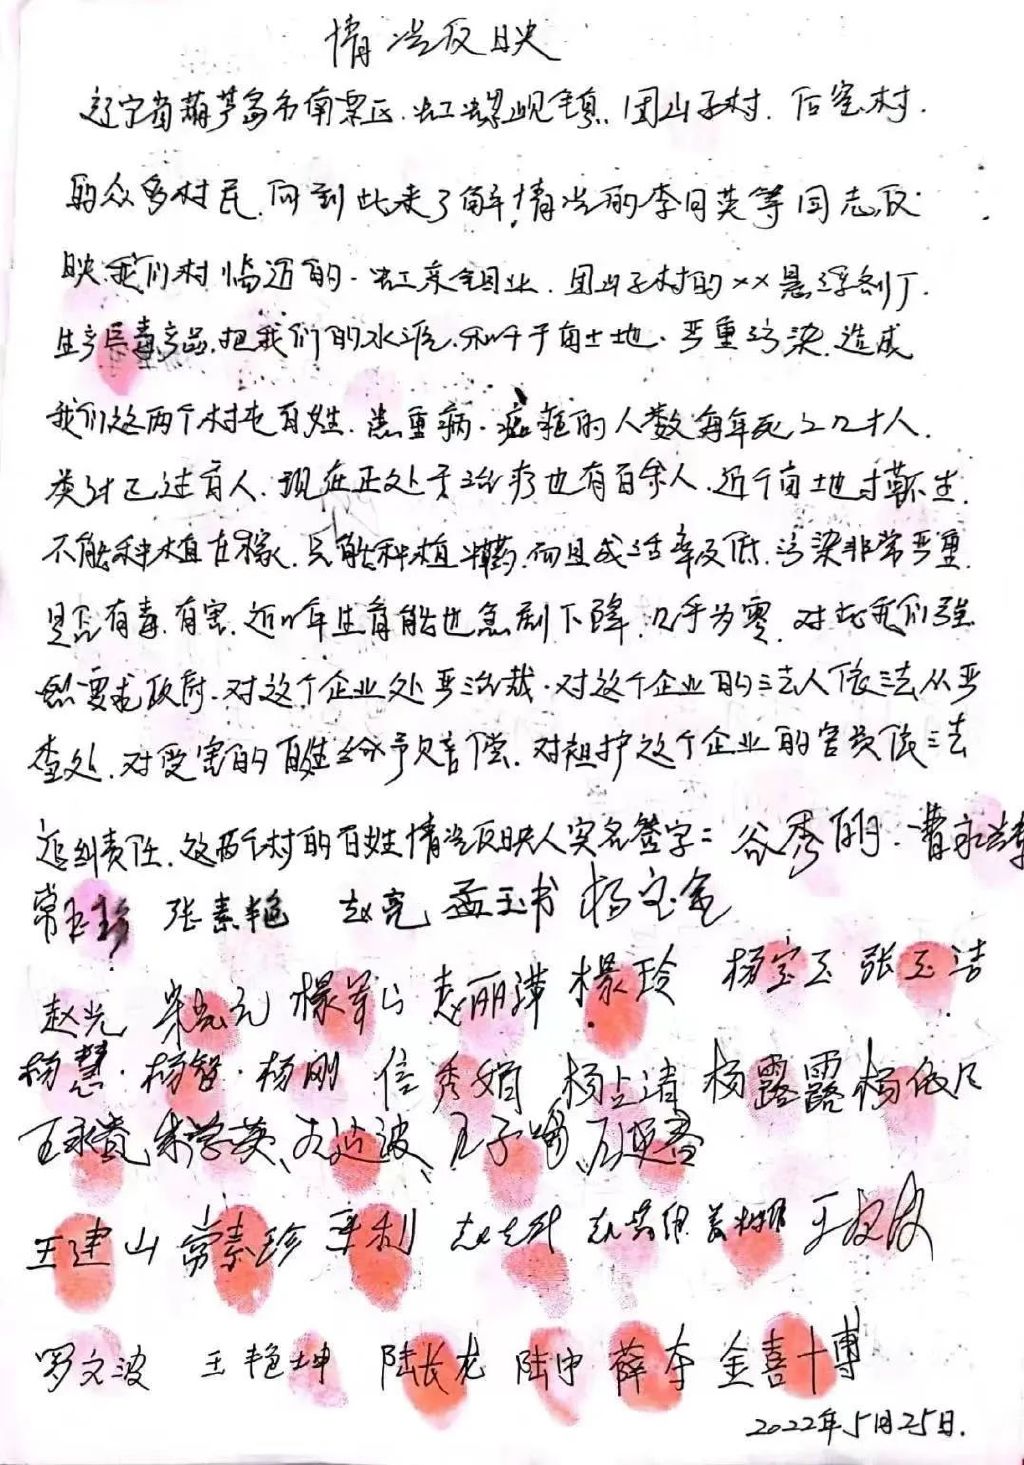 情况反映
辽宁省葫芦岛市南票区.虹螺岘镇.团山子村.后窑村.
的众多村民.向到此来了解情况的李月英等同志反
映我们村临近的.虹京钼业.团山子村的××悬浮剂厂.
生产巨毒产品.把我们的水源.和千亩土地.严重污染.造成
我们这两个村屯百姓.患重病.癌症的人数每年死亡几十人.
类计已过百人.现在正处于治疗也有百余人.近千亩土地寸草不生.
不能种植庄稼.只能种植中草药.而且成活率及低.污染非常严重.
是否有毒.有害.近几年生育能也急剧下降.几乎为零.对此我们强
烈要求政府.对这个企业处严治裁.对这个企业的法人依法从严
查处.对受害的百姓给予赔偿.对袒护这个企业的官员依法
追纠责任.这两个村的百姓情况反映人实名签字:谷秀
常玉珍 张素艳 赵亮 孟玉书 杨宝金
赵光 赵丽萍 杨宝玉 张玉洁
杨慧.杨智.杨刚 信秀娟 杨露露 杨依
王子
王建山 常素珍
罗文波 王艳坤 陆长龙 陆中 薛冬 金喜博
2022年5月25日.